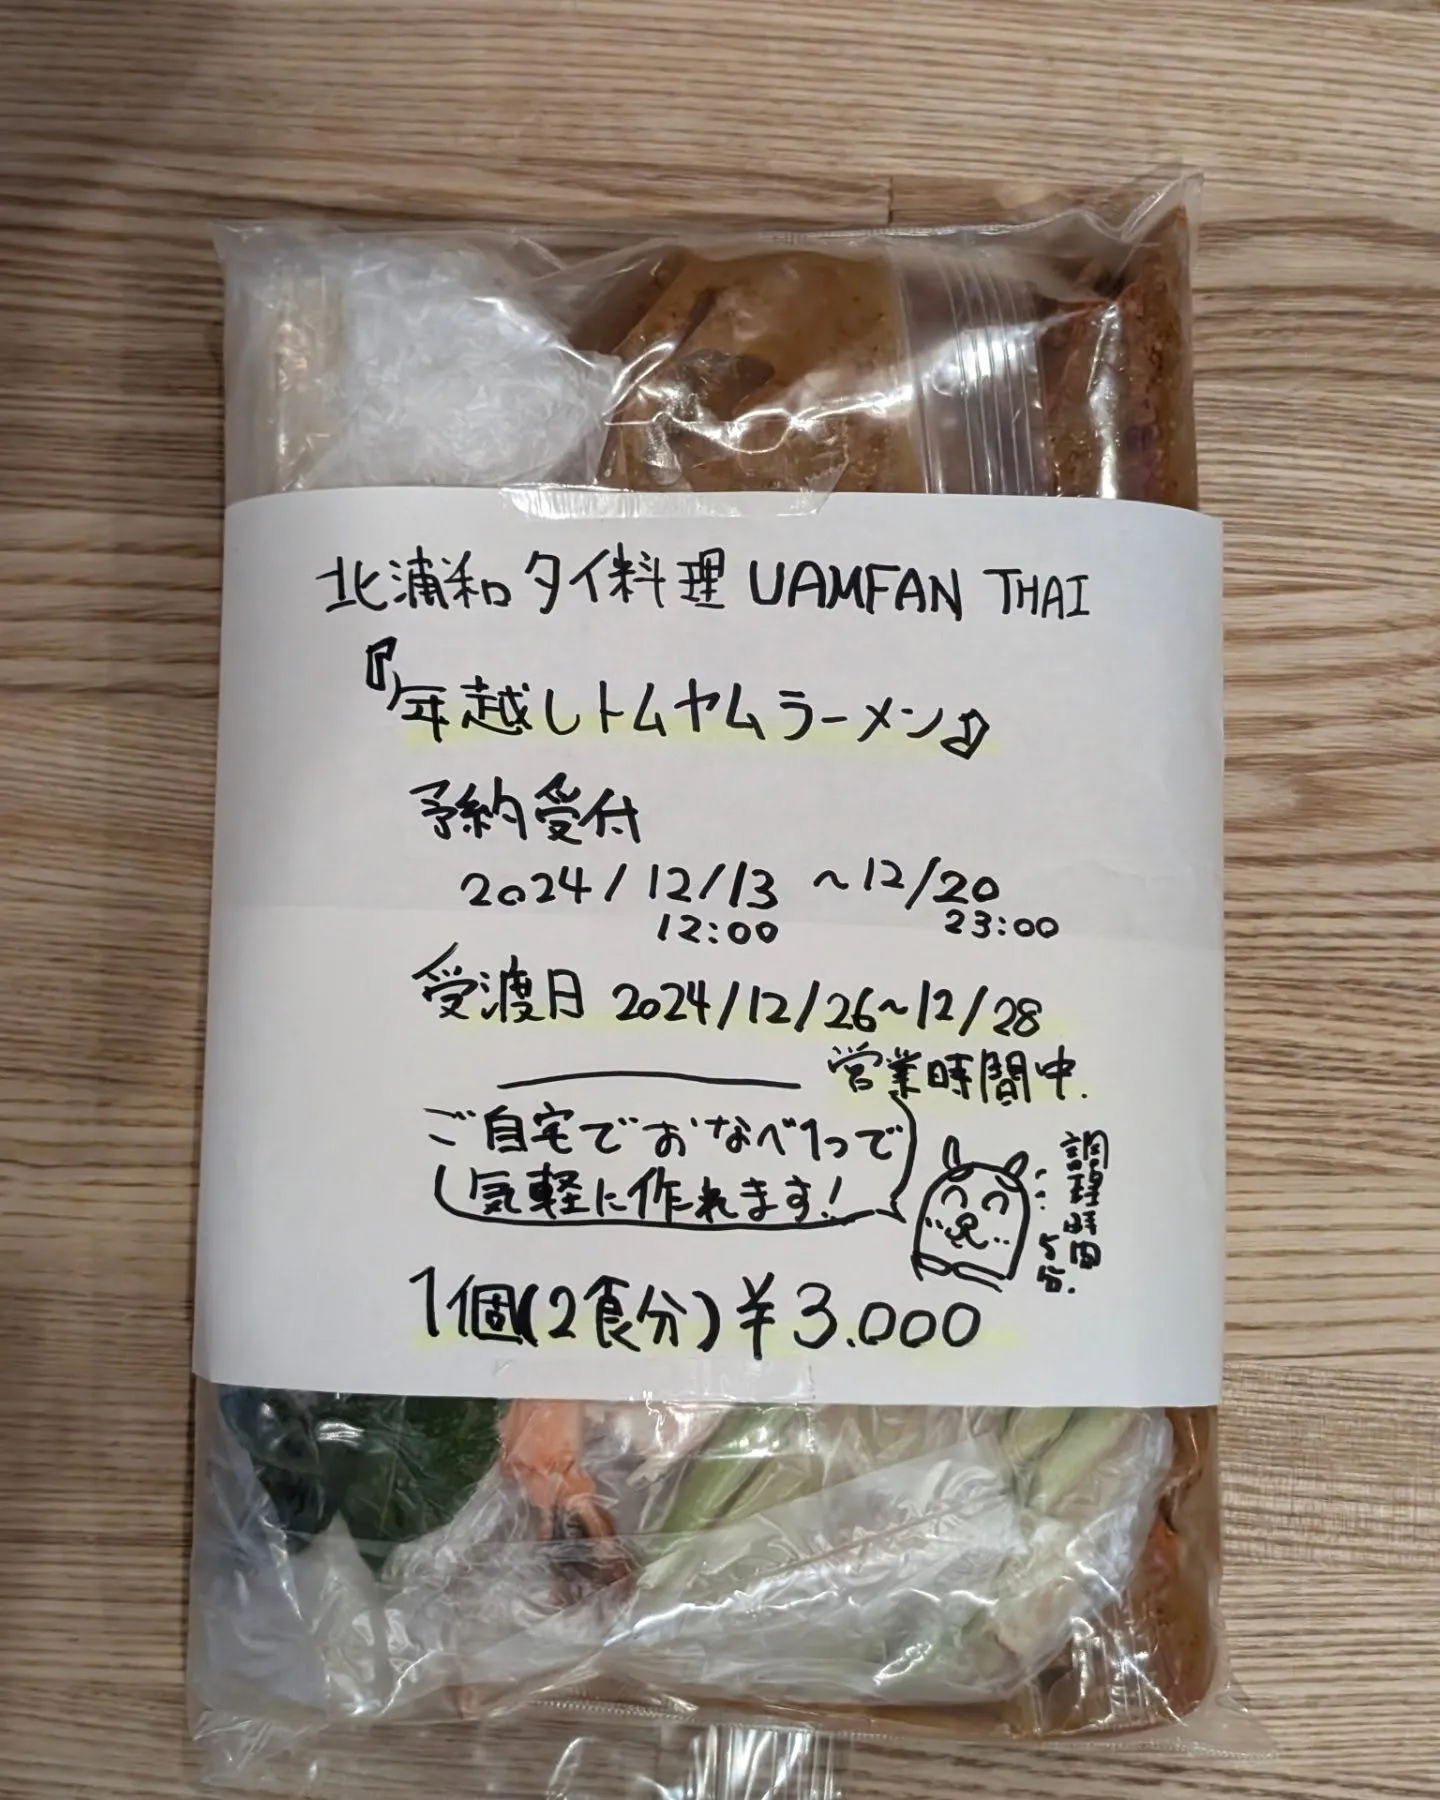 北浦和タイ料理 UAMFAN THAI
『年越しトムヤムラーメン』
予約受付
2024/12/13 ～12/20
12:00 23:00
受渡日 2024/12/26～12/28
営業時間中.
ご自宅でおなべ1つで
気軽に作れます!
調理時間
5分.
1個(2食分)¥3.000